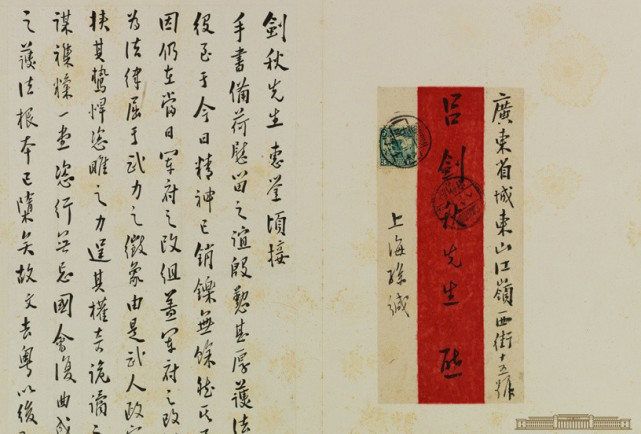 廣東省城東山江嶺西街十五號
呂劍秋先生啟
上海孫緘
劍秋先生惠鑒頃接
手書備荷慰留之誼殷懃甚厚護法
役至于今日精神已銷鑠無餘
因仍在當日軍府之改組蓋軍府之改
為法律屈于武力之徵象由是武人政
挾其鷙悍恣睢之力逞其權奇詭譎之
謀雜糅一堂恣行無忌國會復曲
之護法根本已隳矣故文去粵以後